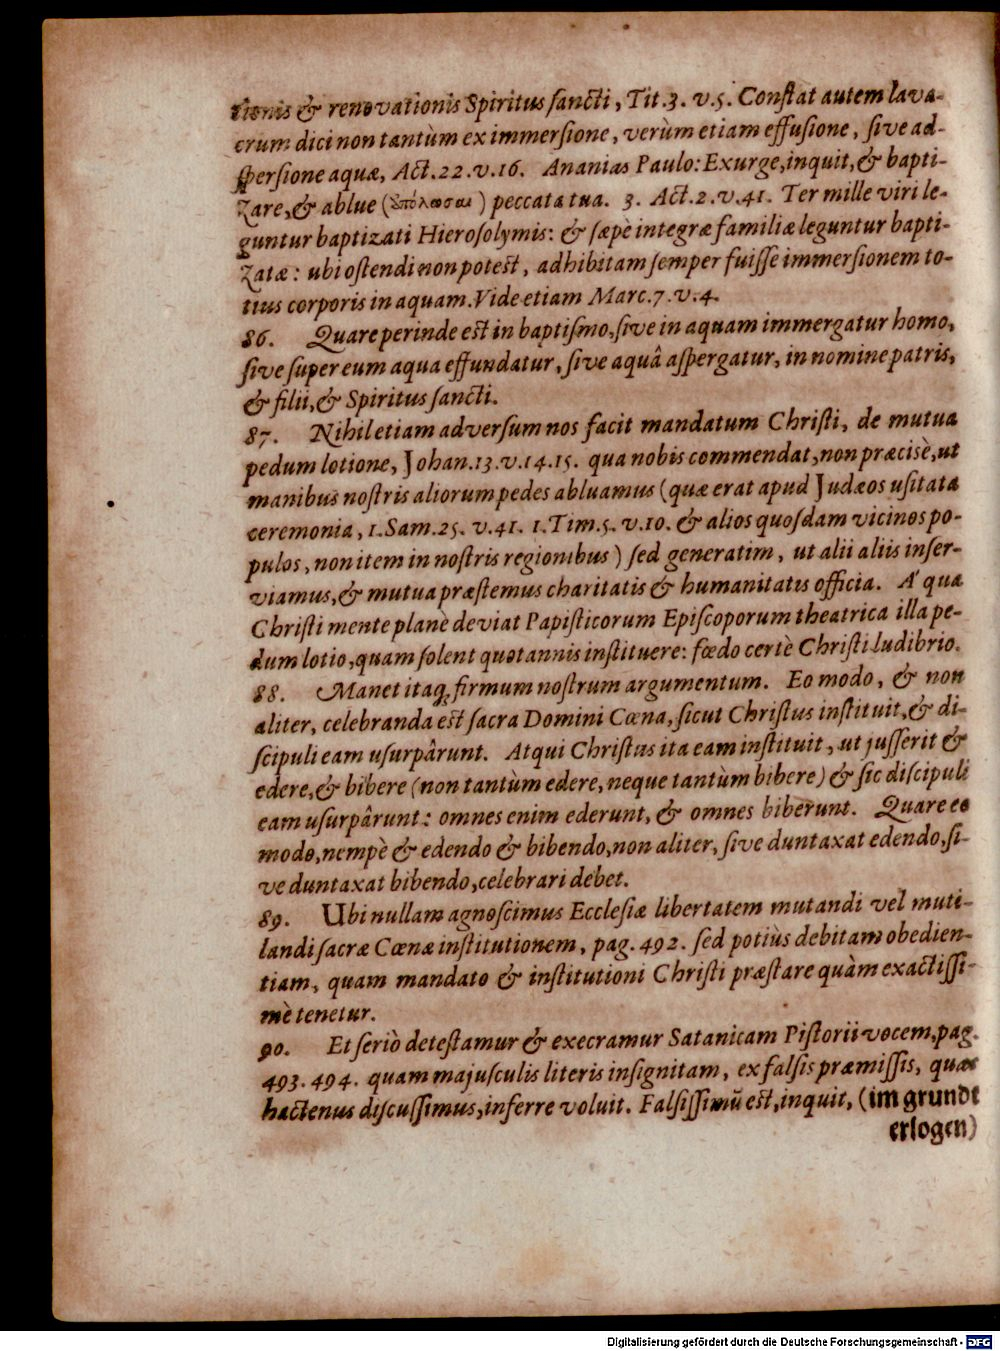 tionis & renovationis Spiritus ſancti, Tit. 3. v. 5. Conſtat autem lava-
crum dici non tantùm ex immerſione, verùm etiam effuſione, ſive ad-
ſperſione aquæ, Act. 22. v. 16. Ananias Paulo: Exurge, inquit, & bapti-
zare, & ablue ( ) peccata tua. 3. Act. 2. v. 41. Ter mille viri le-
guntur baptizati Hieroſolymis: & ſæpè integræ familiæ leguntur bapti-
zatæ: ubi oſtendi non poteſt, adhibitam ſemper fuiſſe immerſionem to-
tius corporis in aquam. Vide etiam Marc. 7. v. 4.
86. Quare perinde eſt in baptiſmo, ſive in aquam immergatur homo,
ſive ſuper eum aqua effundatur, ſive aquâ aſpergatur, in nomine patris,
& filii, & Spiritus ſancti.
87. Nihil etiam adverſum nos facit mandatum Chriſti, de mutua
pedum lotione, Johan. 13. v. 14. 15. qua nobis commendat, non præcisè, ut
manibus noſtris aliorum pedes abluamus (quæ erat apud Judæos uſitata
ceremonia, 1. Sam. 25. v. 41. 1. Tim. 5. v. 10. & alios quoſdam vicinos po-
pulos, non item in noſtris regionibus) ſed generatim, ut alii aliis inſer-
viamus, & mutua præſtemus charitatis & humanitatis officia. A' qua
Chriſti mente planè deviat Papiſticorum Epiſcoporum theatrica illa pe-
dum lotio, quam ſolent quotannis inſtituere: fœdo certè Chriſti ludibrio.
88. Manet itaq; firmum noſtrum argumentum. Eo modo, & non
aliter, celebranda eſt ſacra Domini Cœna, ſicut Chriſtus inſtituit, & di-
ſcipuli eam uſurpârunt. Atqui Chriſtus ita eam inſtituit, ut juſſerit &
edere, & bibere (non tantùm edere, neque tantùm bibere) & ſic diſcipuli
eam uſurpârunt: omnes enim ederunt, & omnes biberunt. Quare eo
modo, nempè & edendo & bibendo, non aliter, ſive duntaxat edendo, ſi-
ve duntaxat bibendo, celebrari debet.
89. Ubi nullam agnoſcimus Eccleſiæ libertatem mutandi vel muti-
landi ſacræ Cœnæ inſtitutionem, pag. 492. ſed potiùs debitam obedien-
tiam, quam mandato & inſtitutioni Chriſti præſtare quàm exactiſſi-
mè tenetur.
90. Et ſeriò deteſtamur & execramur Satanicam Piſtorii vocem, pag.
493. 494. quam majuſculis literis inſignitam, ex falſis præmiſſis, quæ
hactenus diſcuſſimus, inferre voluit. Falſiſſimũ eſt, inquit, (im grundt
erlogen)
Digitalisierung gefördert durch die Deutsche Forschungsgemeinschaft - DFG